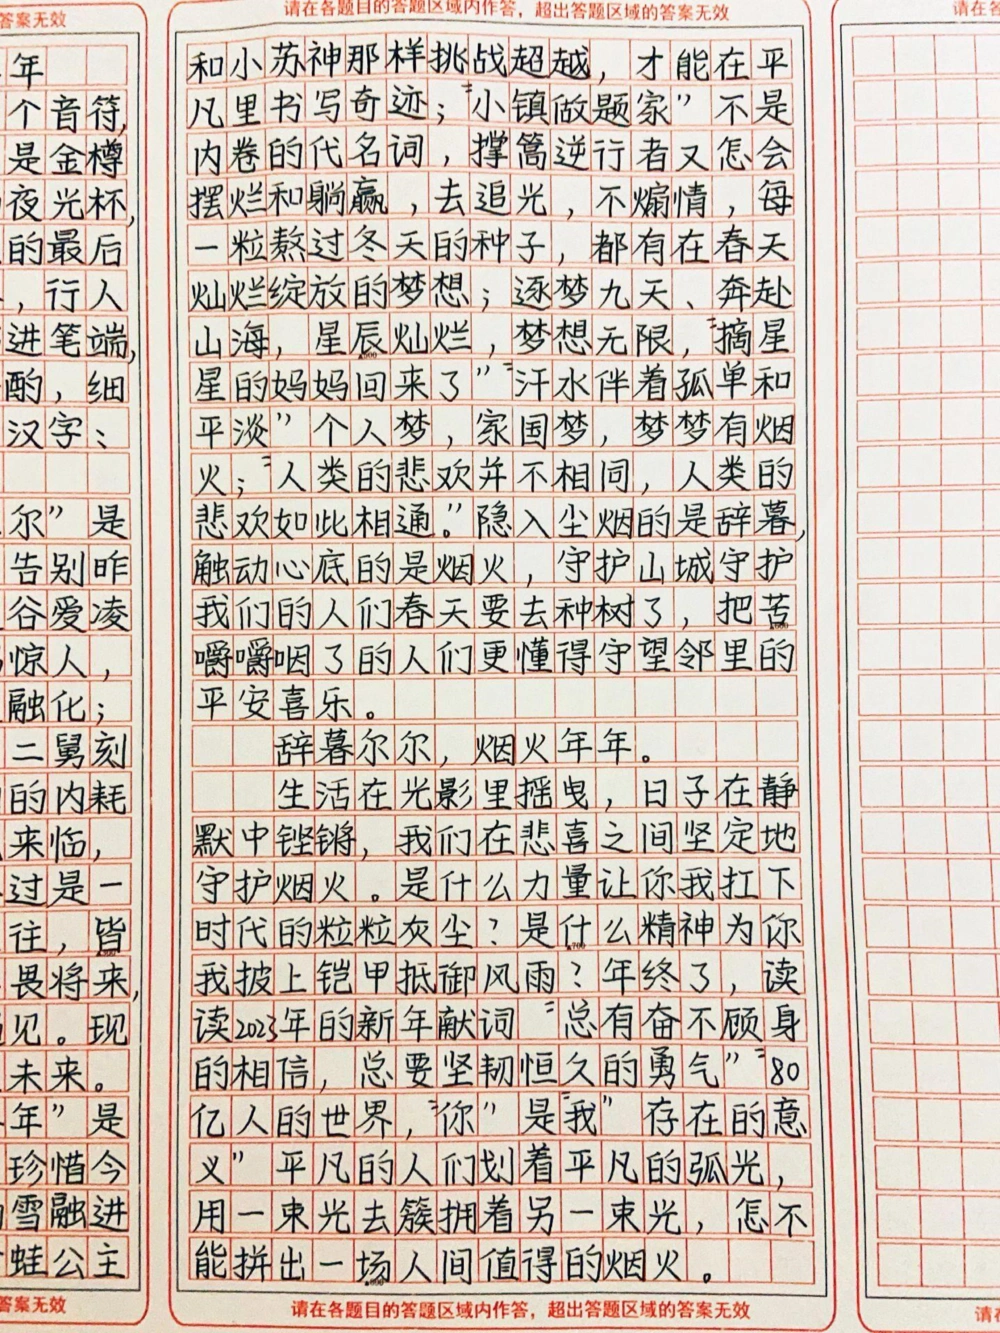 答案无效
年
个音符,
是金樽
夜光杯,
的最后
，行人
进笔端,
酌，细
汉字、
尔”是
告别昨
谷爱凌
惊人，
融化；
二舅刻
的内耗
来临，
过是一
往，皆
畏将来,
见。现
未来。
年”是
珍惜今
雪融进
蛙公主
答案无效
请在各题目的答题区域内作答，超出答题区域的答案无效
和小苏神那样挑战超越，才能在平
凡里书写奇迹；“小镇做题家”不是
内卷的代名词，撑篙逆行者又怎会
摆烂和躺赢，去追光，不煽情，每
一粒熬过冬天的种子，都有在春天
灿烂绽放的梦想；逐梦九天、奔赴
山海，星辰灿烂，梦想无限，“摘星
星的妈妈回来了”“汗水伴着孤单和
平淡”个人梦，家国梦，梦梦有烟
火；“人类的悲欢并不相同，人类的
悲欢如此相通。”隐入尘烟的是辞暮,
触动心底的是烟火，守护山城守护
我们的人们春天要去种树了，把苦
嚼嚼咽了的人们更懂得守望邻里的
平安喜乐。
辞暮尔尔，烟火年年。
生活在光影里摇曳，日子在静
默中铿锵，我们在悲喜之间坚定地
守护烟火。是什么力量让你我扛下
时代的粒粒灰尘？是什么精神为你
我披上铠甲抵御风雨？年终了，读
读2023年的新年献词“总有奋不顾身
的相信，总要坚韧恒久的勇气”“80
亿人的世界，“你”是“我”存在的意
义”平凡的人们划着平凡的弧光，
用一束光去簇拥着另一束光，怎不
能拼出一场人间值得的烟火。
请在各题目的答题区域内作答，超出答题区域的答案无效
请在各